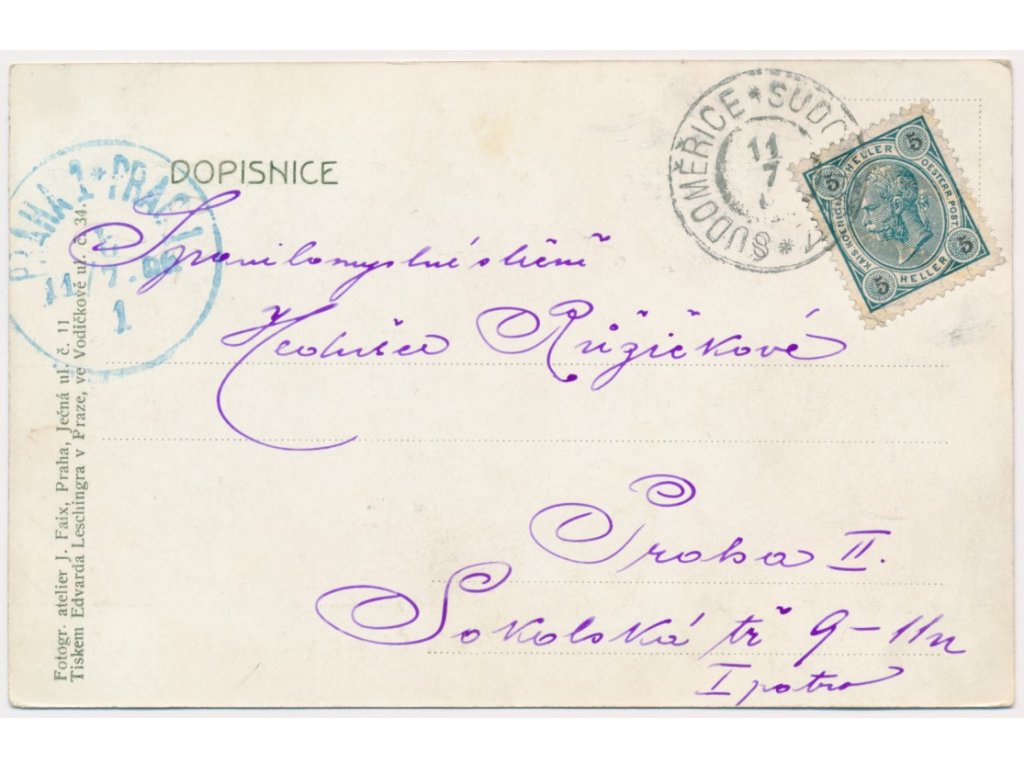 DOPISNICE
SUDOMĚŘICE * SUDO
11
7
5 HELLER 5
OESTERR. POST
5 HELLER 5
PRAHA 1 * PRAG 1
11 7
1
Spanilomyslné slečně
Hedušce Růžičkové
Praha II.
Sokolská tř 9-11n
I patro
Fotogr. atelier J. Faix, Praha, Ječná ul. č. 11
Tiskem Edvarda Leschingra v Praze, ve Vodičkově u. č. 34.